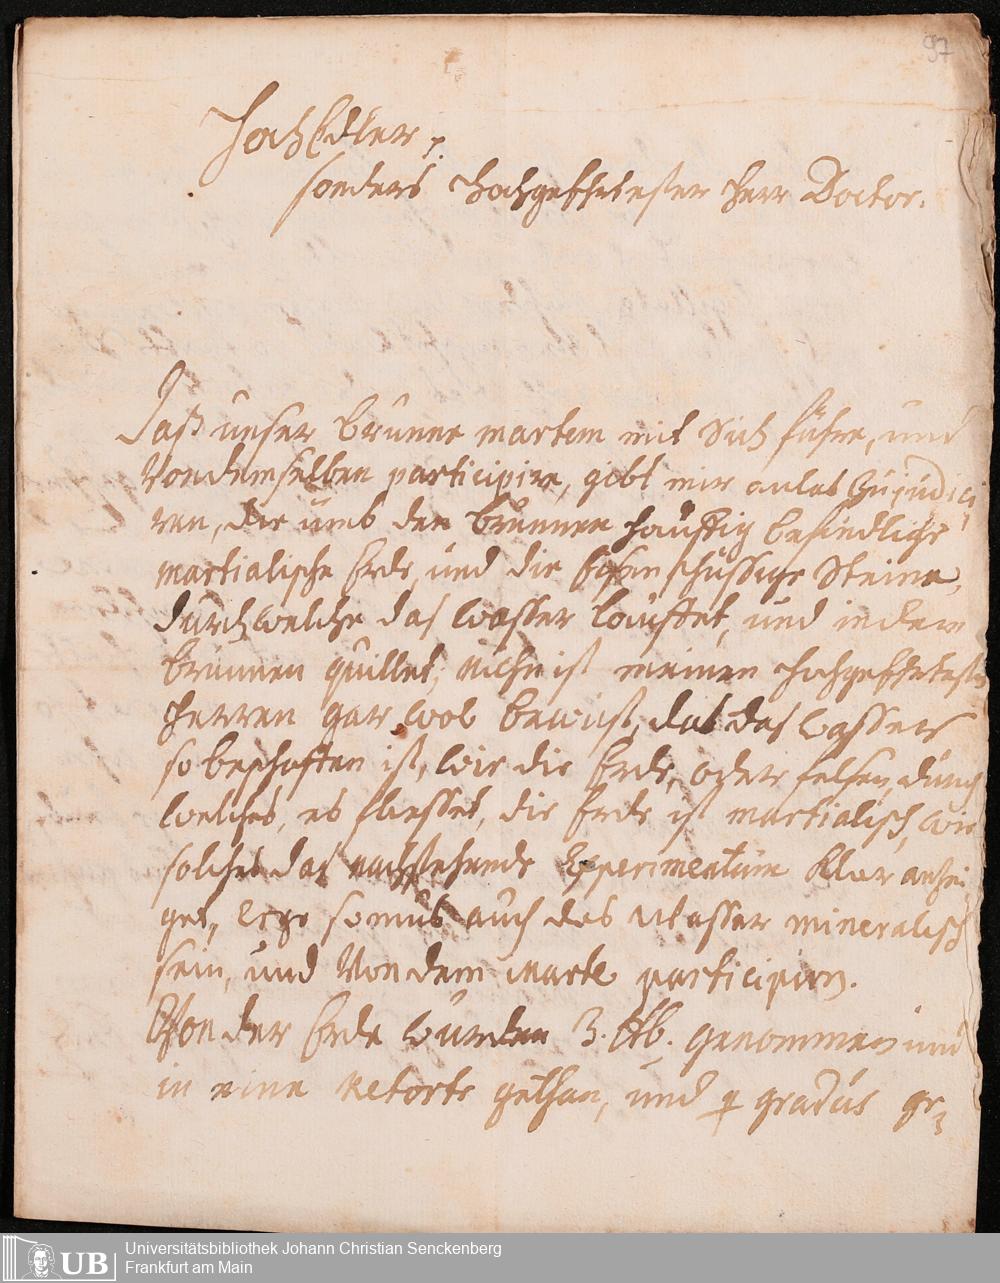 97
HochEdler p.
sonders Hochgeehrtester Herr Doctor.
Daß unser brunne martem mit Sich führe, und
Von demselben participire, gibt mir anlas Zu judici
ren, die umb den brunnen häuffig befindliche
martialische Erde, und die Eisenschüssige Steine,
durch welche das Wasser läuffet, und in dem
brunnen quillet; nicht ist meinen Hochgeehrtesten
Herren gar wol bewust, das das Wasser
so beschaffen ist, wie die Erde, oder felsen, durch
welches, es fliesset, die Erde ist martialisch, wie
solches das nachstehende Experimentum klar anzei
get, ergo so mus auch das Wasser mineralisch
sein, und Von dem Marte participirn.
Von der Erde wurden 3. lb. genommen und
in eine Retorte gethan, und p gradus ge
UB
Universitätsbibliothek Johann Christian Senckenberg
Frankfurt am Main